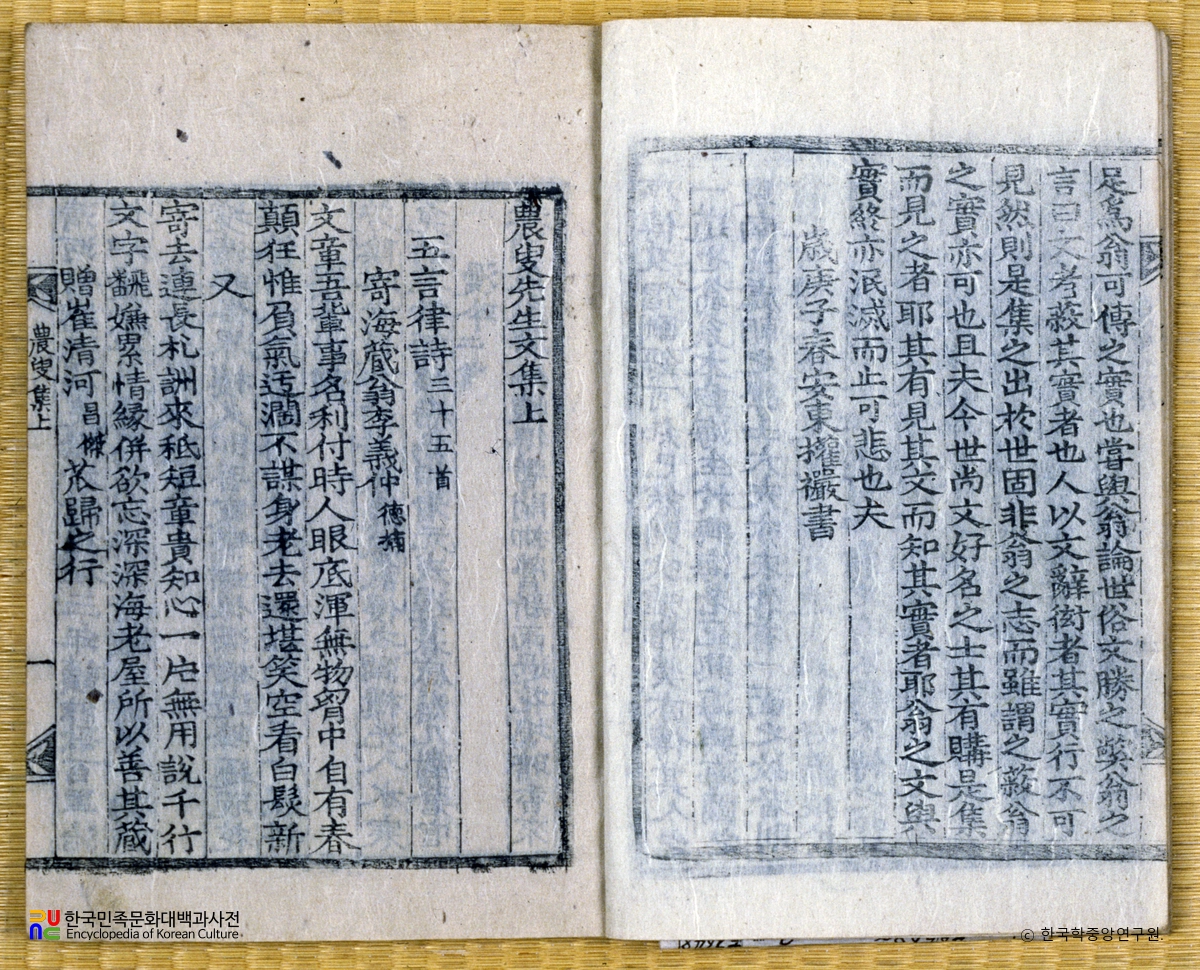 足爲翁可傳之實也嘗與翁論世俗文勝之獘翁之
言曰文者蔽其實者也人以文辭衒者其實行不可
見然則是集之出於世固非翁之志而雖謂之蔽翁
之實亦可也且夫今世尚文好名之士其有購是集
而見之者耶其有見其文而知其實者耶翁之文與
實終亦泯滅而止可悲也夫
歲庚子春安東權禶書
農叟先生文集上
五言律詩三十五首
寄海藏翁李義仲德補
文章吾輩事名利付時人眼底渾無物胷中自有春
顛狂惟負氣迂濶不謀身老去還堪笑空看白髮新
又
寄去連長札詶來秪短章貴知心一片無用說千行
文字飜嫌累情緣併欲忘深深海老屋所以善其藏
贈崔清河昌傑罷歸之行
農叟集上
一
한국민족문화대백과사전
Encyclopedia of Korean Culture
© 한국학중앙연구원.